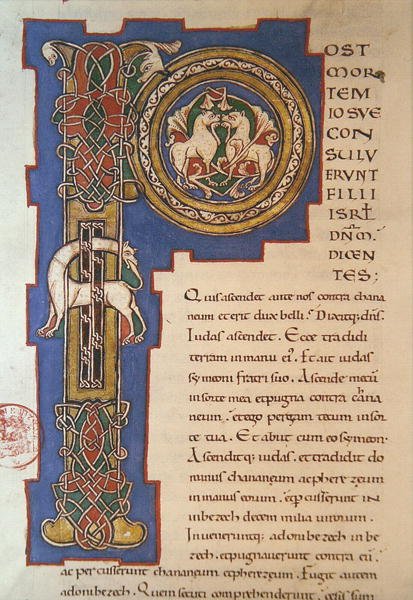 P OST
MOR
TEM
IOSVE
CON
SULV
ERVNT
FILII
ISRL
DNM.
DICEN
TES;
Quis ascendet ante nos contra chana
neum et erit dux belli? Dixitq; dns.
Iudas ascendet. Ecce tradidi
terram in manu ei'. Et ait iudas
symeoni fratri suo. Ascende mecu
in sorte mea et pugna contra chana
neum. et ego pergam tecum in sor
te tua. Et abiit cum eo symeon.
Ascenditq; iudas. et tradidit do
minus chananeum ac pherezeum
in manus eorum. et p cusserunt in
in bezech decem milia virorum.
Inveneruntq; adonibezech in be
zech. et pugnaverunt contra eu.
ac percusserunt chananeum et pherezeum. Fugit autem
adonibezech. Quem secuti comprehenderunt. cesis sum